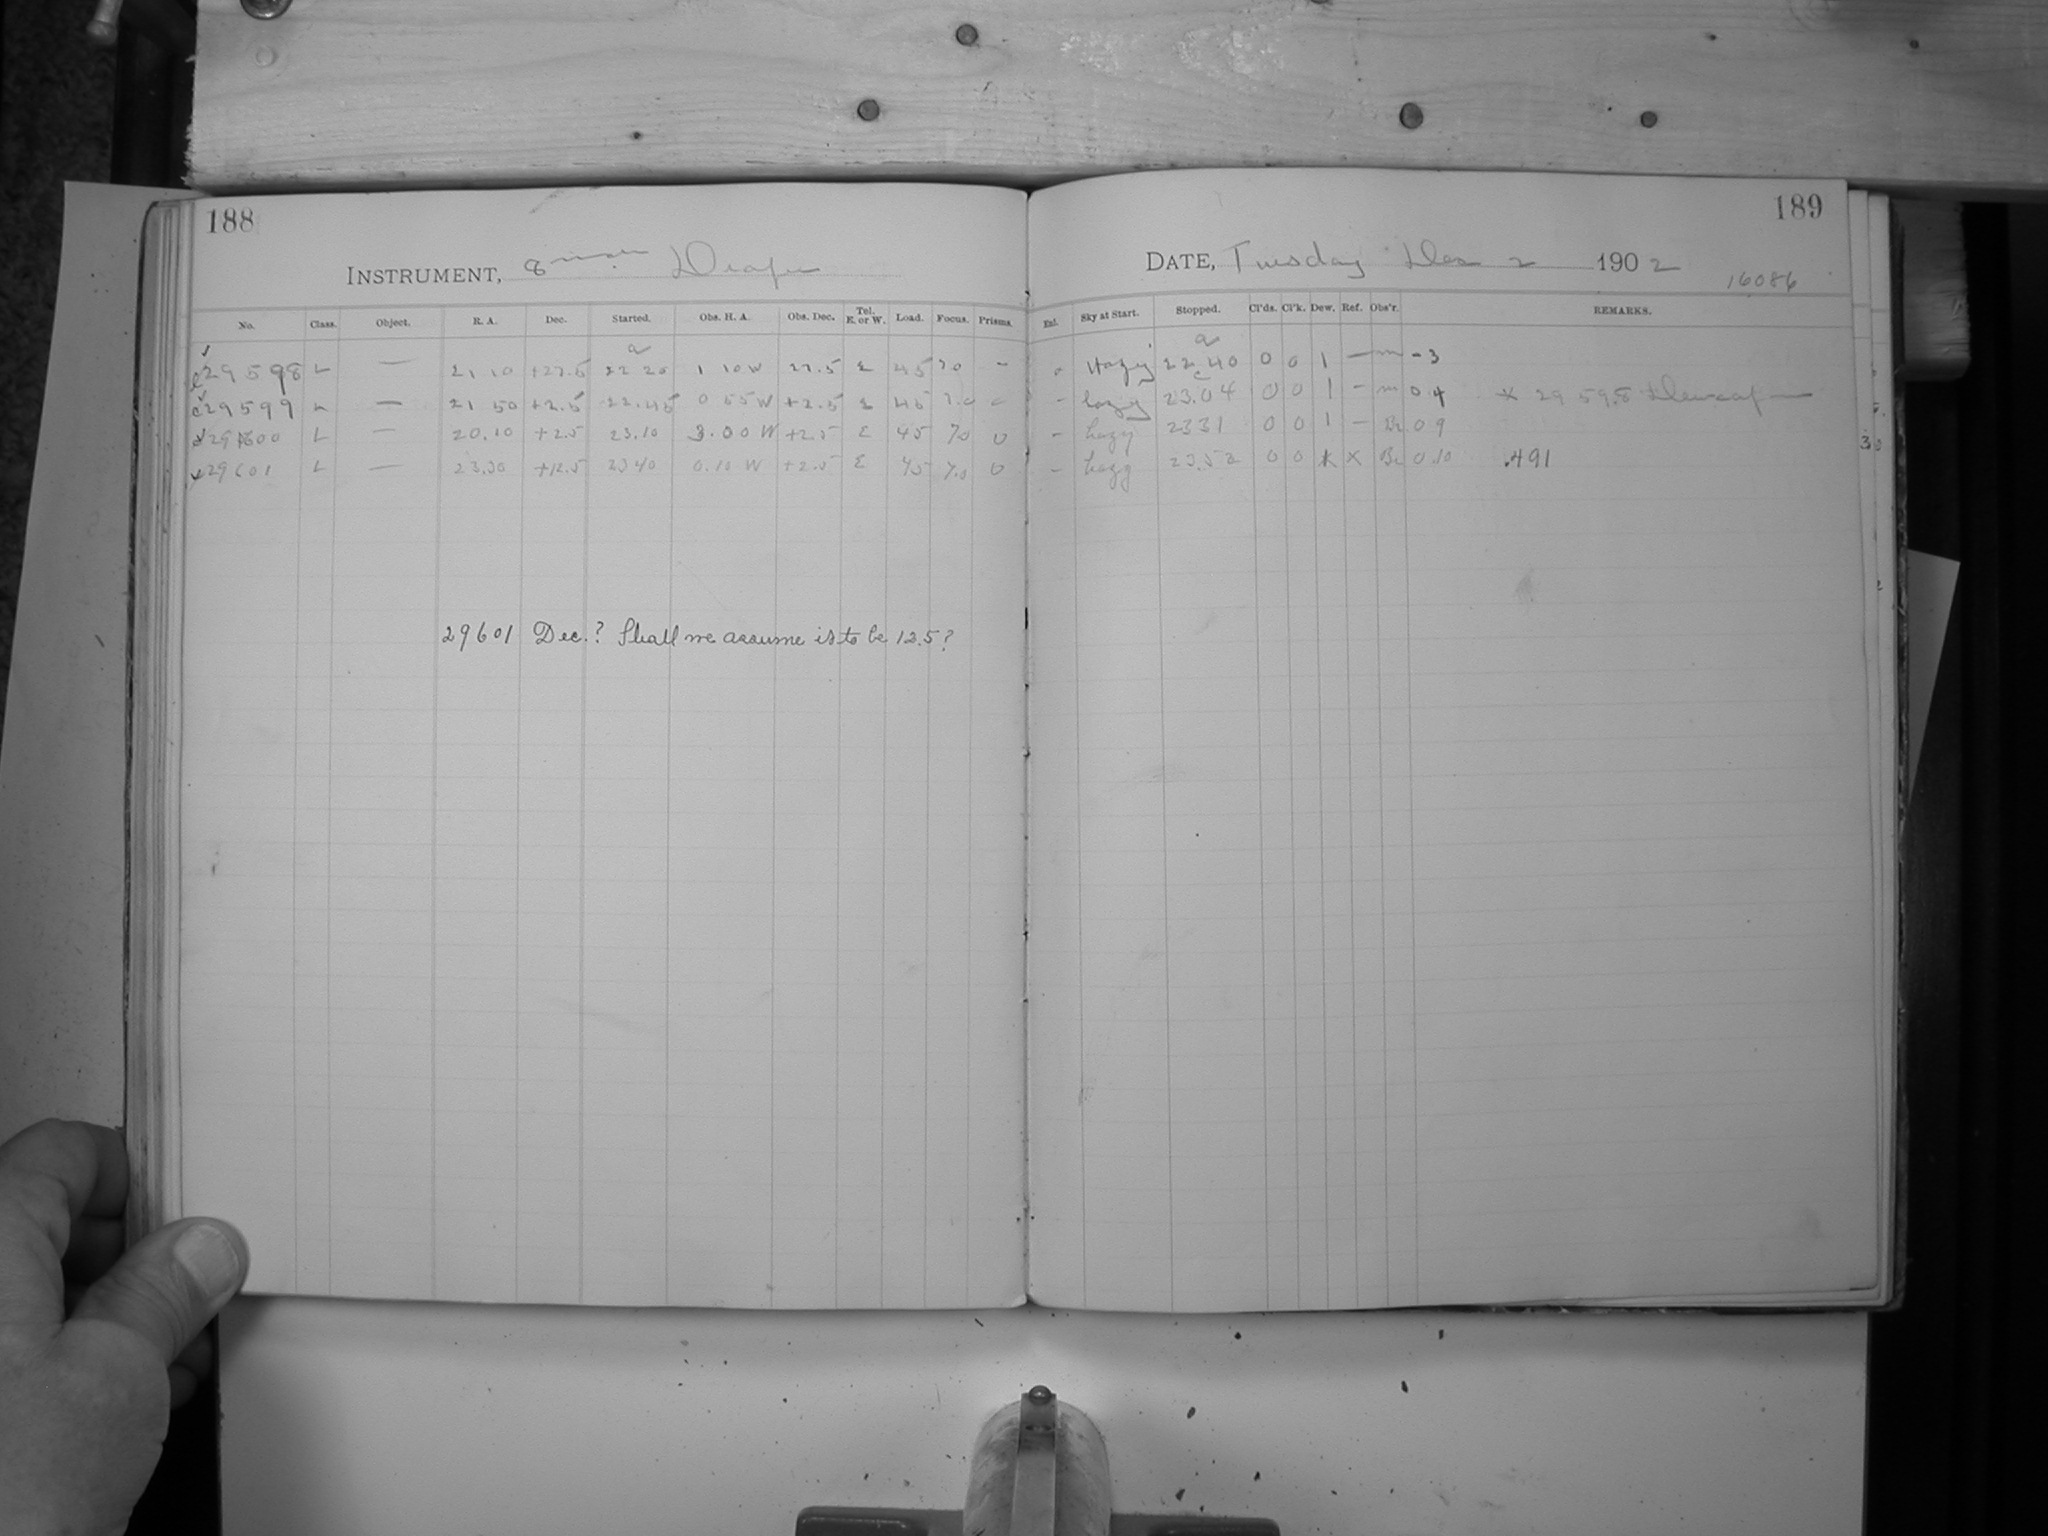 188
INSTRUMENT, 8 Draper
No. Class. Object. R. A. Dec. Started. Obs. H. A. Obs. Dec. Tel. E. or W. Load. Focus. Prisms.
29598 L — 21 10 +27.5 22 20 1 10 W 27.5 E 45 70 –
29599 L — 21 50 +2.5 22.45 0 55 W +2.5 E 45 7.0
29600 L — 20.10 +2.5 23.10 3.00 W +2.5 E 45 70 0
29601 L — 23.30 +12.5 23 40 0.10 W +2.5 E 45 7.0 0
29601 Dec.? Shall we assume is to be 12.5?
189
DATE, Tuesday Dec 2 1902
16086
Ext. Sky at Start. Stopped. Cl'ds. Cl'k. Dew. Ref. Obs'r. REMARKS.
Hazy 22 40 0 0 1 — m - 3
– hazy 23.04 0 0 1 – m 0.4 x 29 598
– hazy 23 31 0 0 1 – Bc 0 9
– hazy 23.52 0 0 x x Bc 0.10 .491